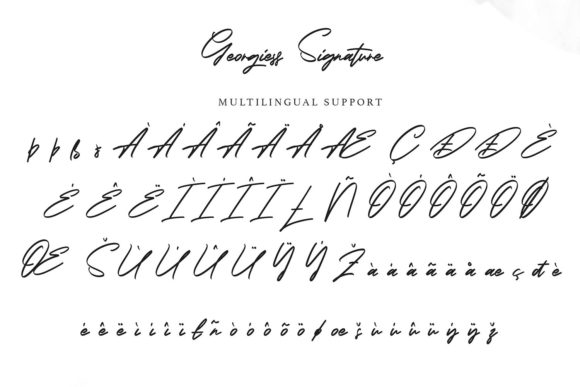 Georgiess Signature
MULTILINGUAL SUPPORT
þ þ ß ž À Á Â Ã Ä Å Æ Ç Ð Đ È
É Ê Ë Ì Í Î Ï Ł Ñ Ò Ó Ô Õ Ö Ø
Œ Š Ù Ú Û Ü Ý Ÿ Ž à á â ã ä å æ ç đ è
é ê ë ì í î ï ł ñ ò ó ô õ ö ø œ š ù ú û ü ý ÿ ž